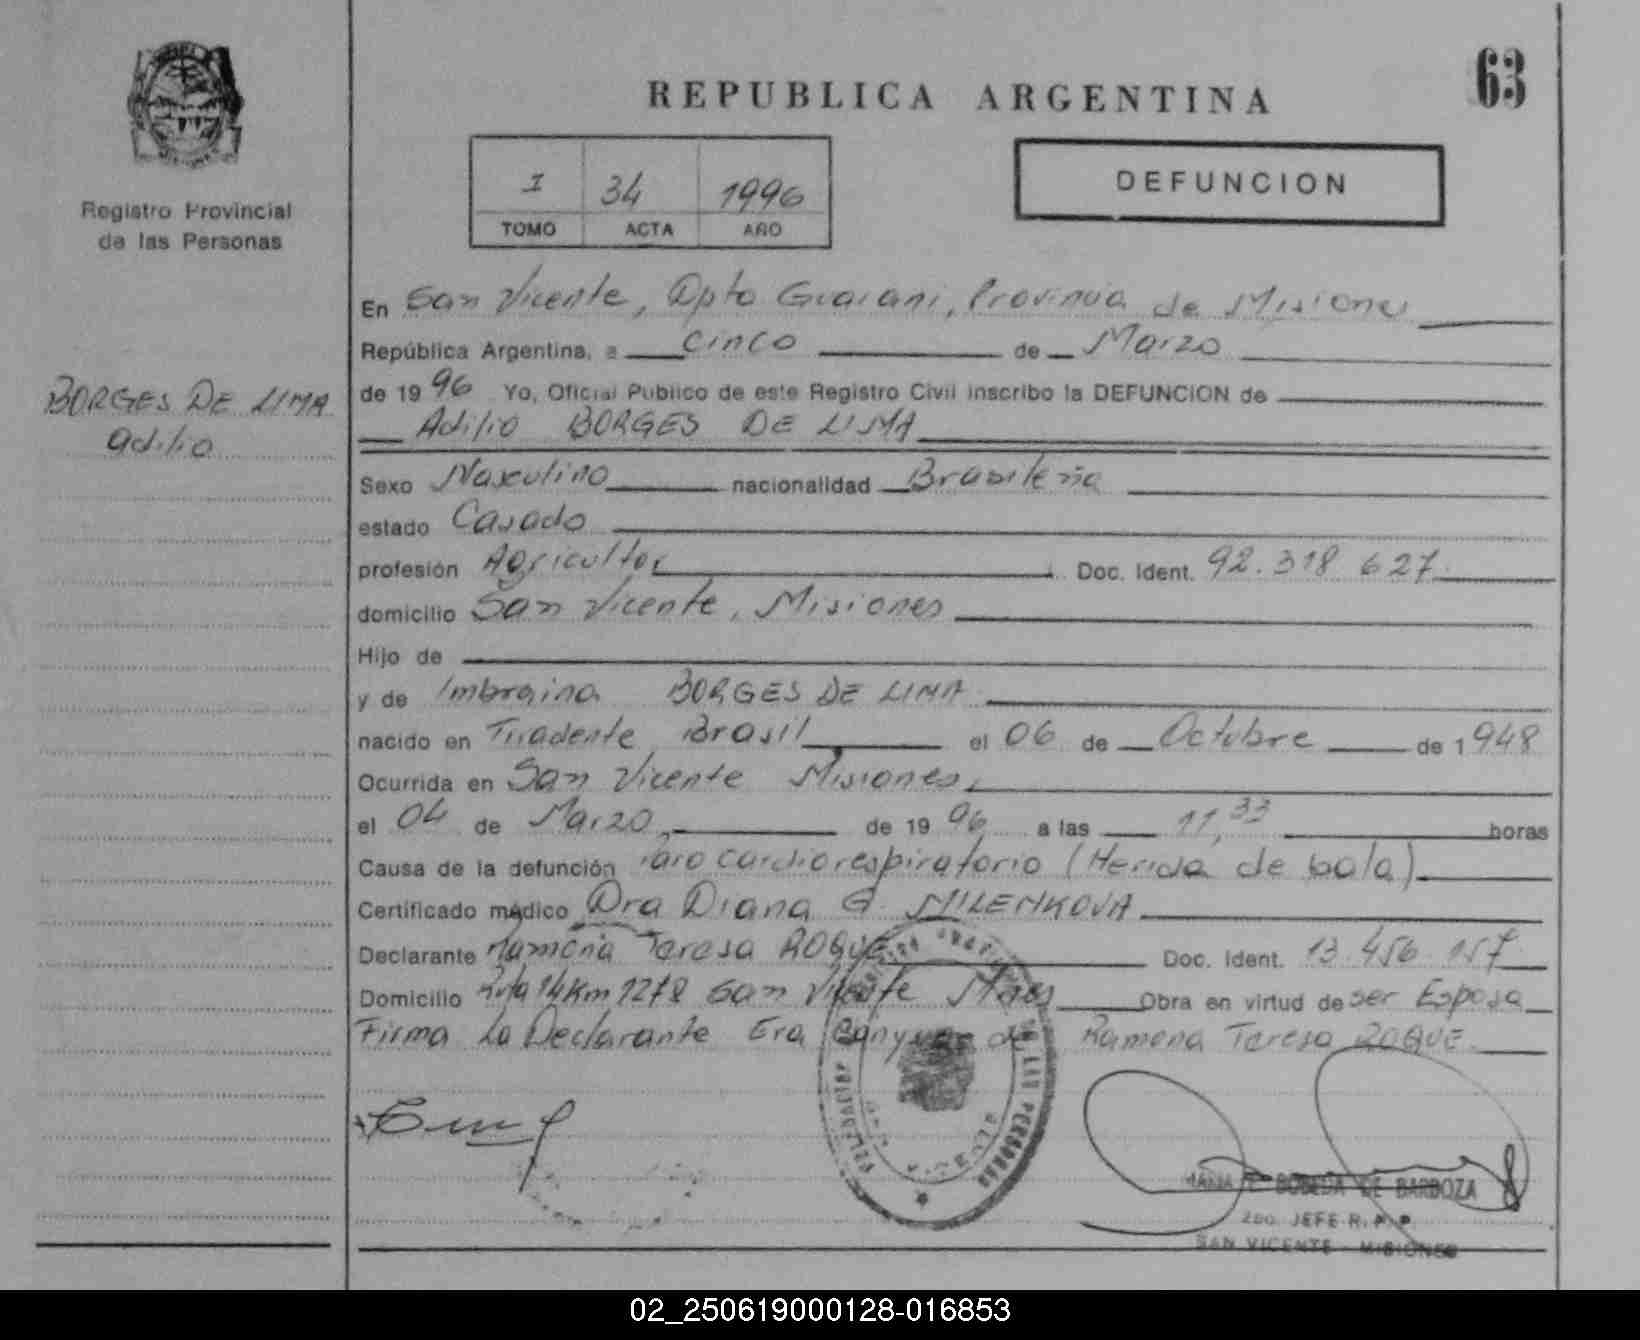 63
REPUBLICA ARGENTINA
DEFUNCION
I 34 1996
TOMO ACTA AÑO
Registro Provincial
de las Personas
BORGES DE LIMA
Adilio
En San Vicente, Dpto Guarani, Provincia de Misiones
República Argentina, a cinco de Marzo
de 1996 Yo, Oficial Publico de este Registro Civil inscribo la DEFUNCION de
Adilio BORGES DE LIMA
Sexo Masculino nacionalidad Brasileña
estado Casado
profesión Agricultor Doc. Ident. 92.318 627
domicilio San Vicente, Misiones
Hijo de
y de Imbraina BORGES DE LIMA
nacido en Tiradente Brasil el 06 de Octubre de 1948
Ocurrida en San Vicente Misiones,
el 04 de Marzo, de 1996 a las 11,33 horas
Causa de la defunción Paro cardiorespiratorio (Herida de bala)
Certificado médico Dra Diana G. MILENKOVA
Declarante Ramona Teresa ROQUE Doc. Ident. 13.456.157
Domicilio Ruta 14 Km 1278 San Vicente Mnes Obra en virtud de ser Esposa
Firma La Declarante Era Ramona Teresa ROQUE
DE LAS PERSONAS
VICENTE
MARIA E. BOBEDA DE BARBOZA
2do. JEFE R. P. P.
SAN VICENTE - MISIONES
02_250619000128-016853